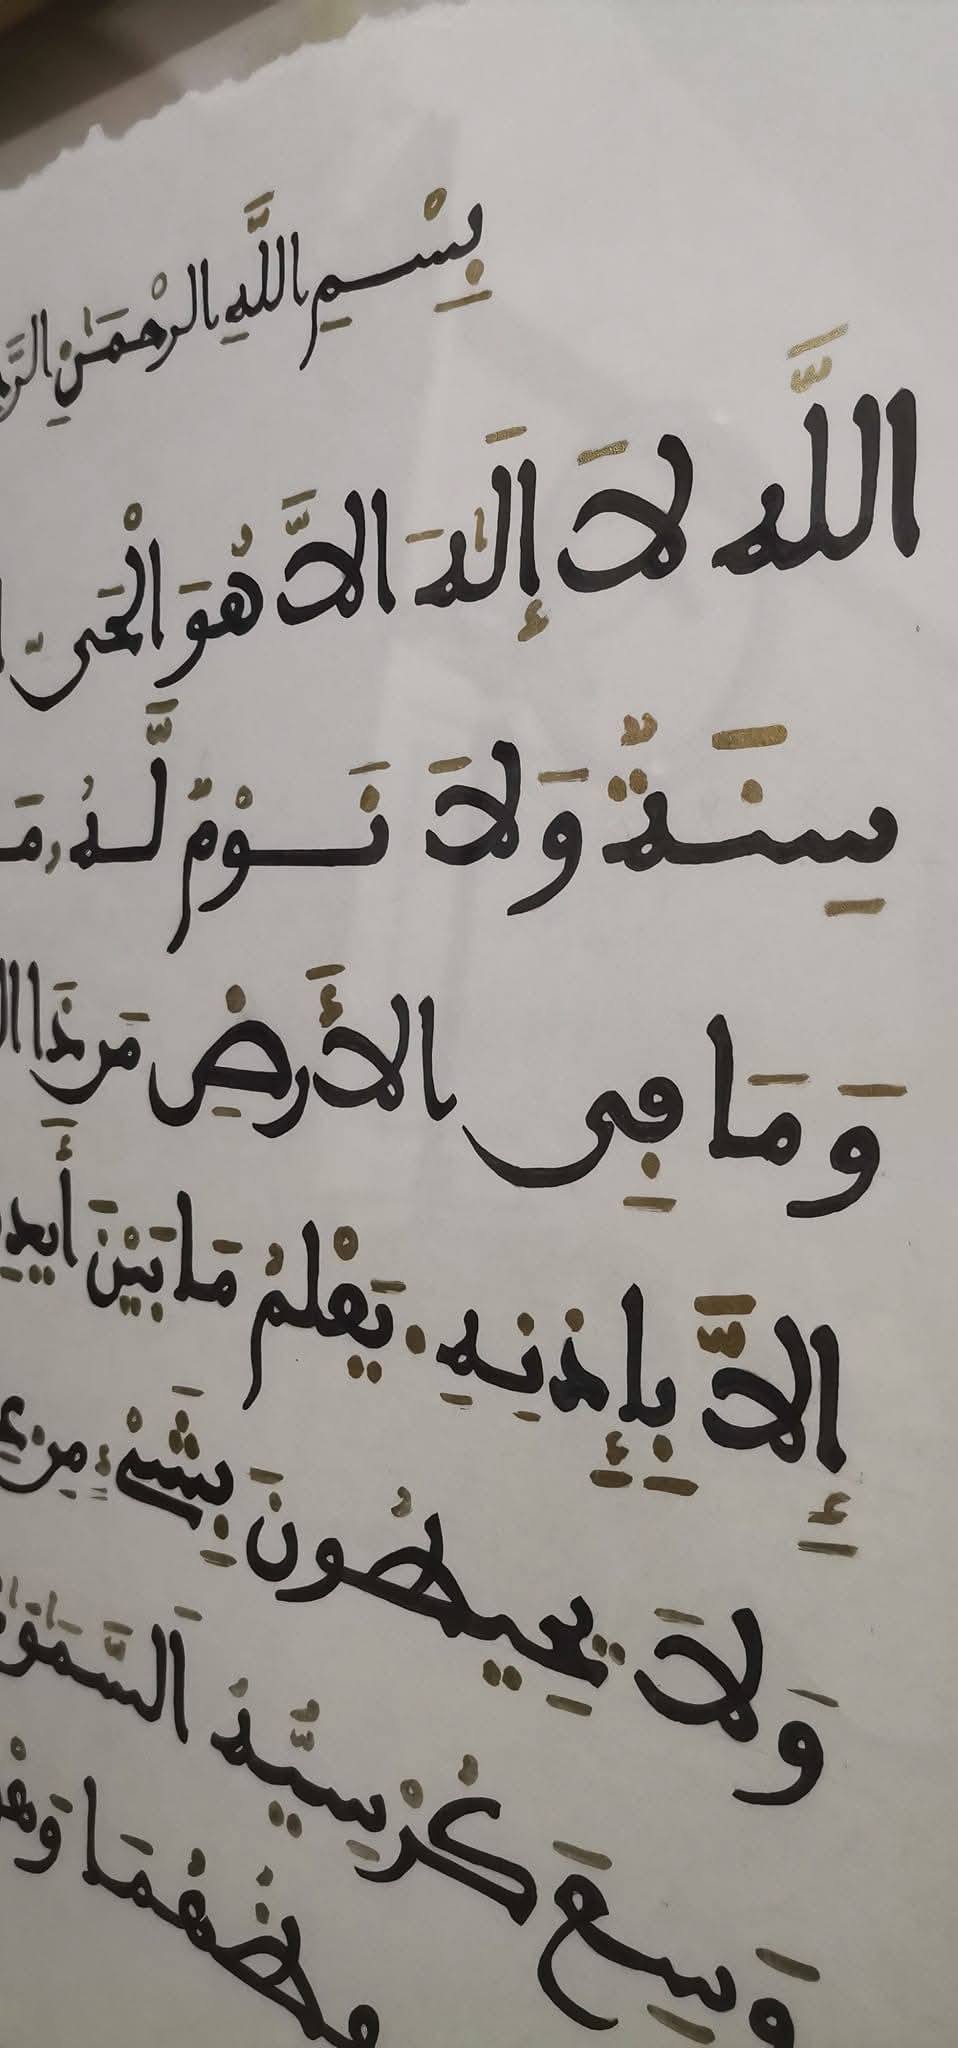 بِسْمِ اللَّهِ الرَّحْمَٰنِ
اللَّه لَا إِلَٰهَ إِلَّا هُوَ الْحَىُّ
سِنَةٌ وَلَا نَوْمٌ لَّهُ مَا
وَمَا فِى الْأَرْضِ مَن ذَا
إِلَّا بِإِذْنِهِ يَعْلَمُ مَا بَيْنَ
وَلَا يُحِيطُونَ بِشَىْءٍ مِنْ
وَسِعَ كُرْسِيُّهُ السَّمَٰوَٰ
حِفْظُهُمَا وَهُوَ